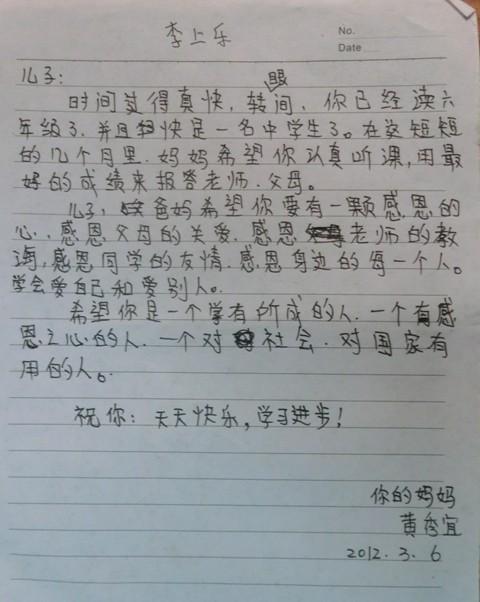 李上乐
No.
Date
儿子：
时间过得真快，转眼间，你已经读六
年级了，并且很快是一名中学生了。在这短短
的几个月里，妈妈希望你认真听课，用最
好的成绩来报答老师、父母。
儿子，爸妈希望你要有一颗感恩的
心，感恩父母的关爱，感恩老师的教
诲，感恩同学的友情，感恩身边的每一个人。
学会爱自己和爱别人。
希望你是一个学有所成的人，一个有感
恩之心的人，一个对社会，对国家有
用的人。
祝你：天天快乐，学习进步！
你的妈妈
黄秀宜
2012.3.6